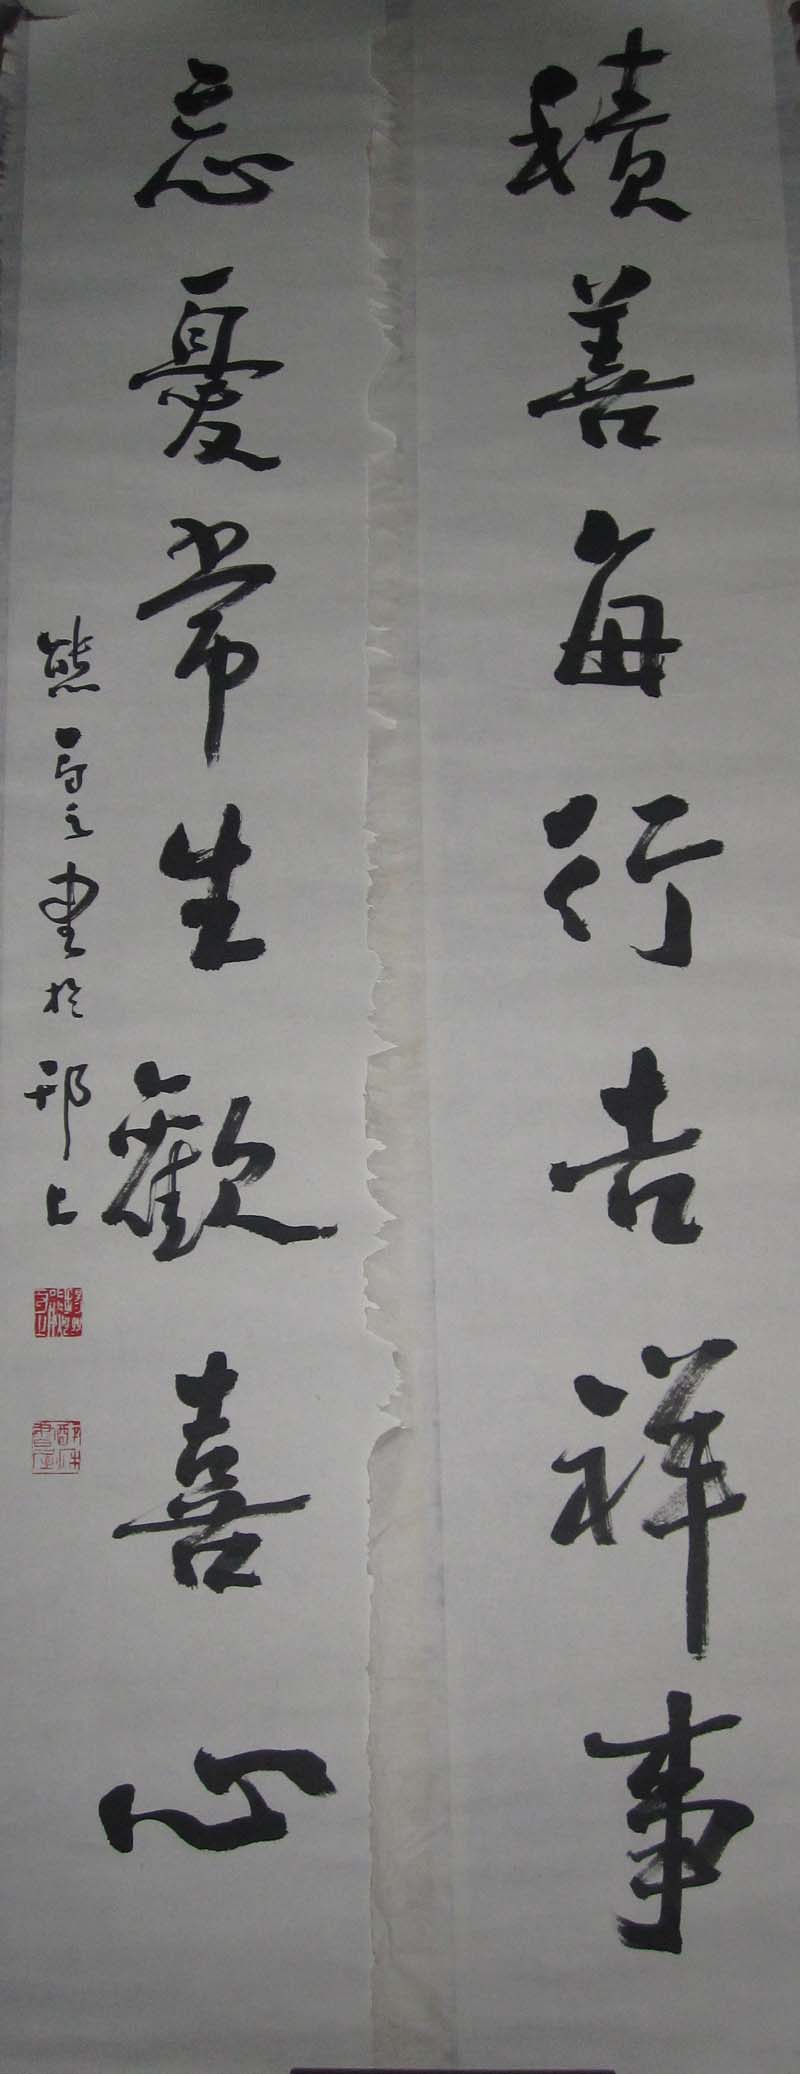 積善每行吉祥事
忘憂常生歡喜心
熊百之書於邗上